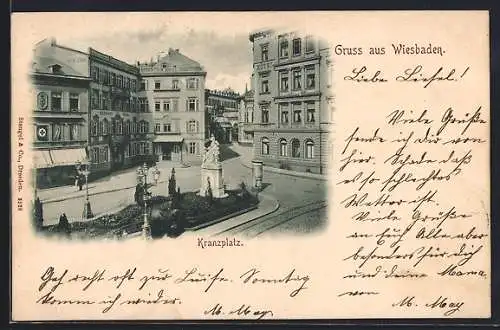 Gruss aus Wiesbaden.
Liebe Liesel!
Viele Grüße
sende ich dir von
hier. Schade daß
es so schlechtes
Wetter ist.
Viele Grüße
an Euch Alle aber
besonders für dich
und deine Mama.
von
M. May
Kranzplatz.
Geh recht oft zur Luise. Sonntag
komm ich wieder.
M. May.
Stengel & Co., Dresden. 2128